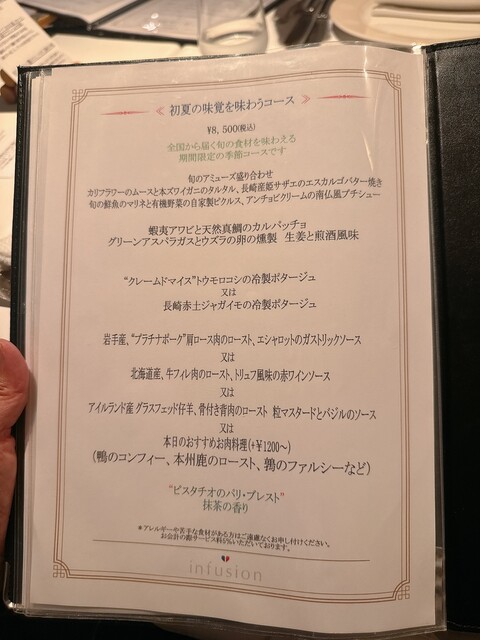 初夏の味覚を味わうコース
¥8,500(税込)
全国から届く旬の食材を味わえる
期間限定の季節コースです
旬のアミューズ盛り合わせ
カリフラワーのムースと本ズワイガニのタルタル、長崎産姫サザエのエスカルゴバター焼き
旬の鮮魚のマリネと有機野菜の自家製ピクルス、アンチョビクリームの南仏風プチシュー
蝦夷アワビと天然真鯛のカルパッチョ
グリーンアスパラガスとウズラの卵の燻製 生姜と煎酒風味
“クレームドマイス”トウモロコシの冷製ポタージュ
又は
長崎赤土ジャガイモの冷製ポタージュ
岩手産、“プラチナポーク”肩ロース肉のロースト、エシャロットのガストリックソース
又は
北海道産、牛フィレ肉のロースト、トリュフ風味の赤ワインソース
又は
アイルランド産 グラスフェッド仔羊、骨付き背肉のロースト 粒マスタードとバジルのソース
又は
本日のおすすめお肉料理(+¥1200~)
(鴨のコンフィー、本州鹿のロースト、鶉のファルシーなど)
“ピスタチオのパリ・ブレスト”
抹茶の香り
*アレルギーや苦手な食材がある方はご遠慮なくお申し付けください。
お会計の際サービス料5%いただいております。
infusion